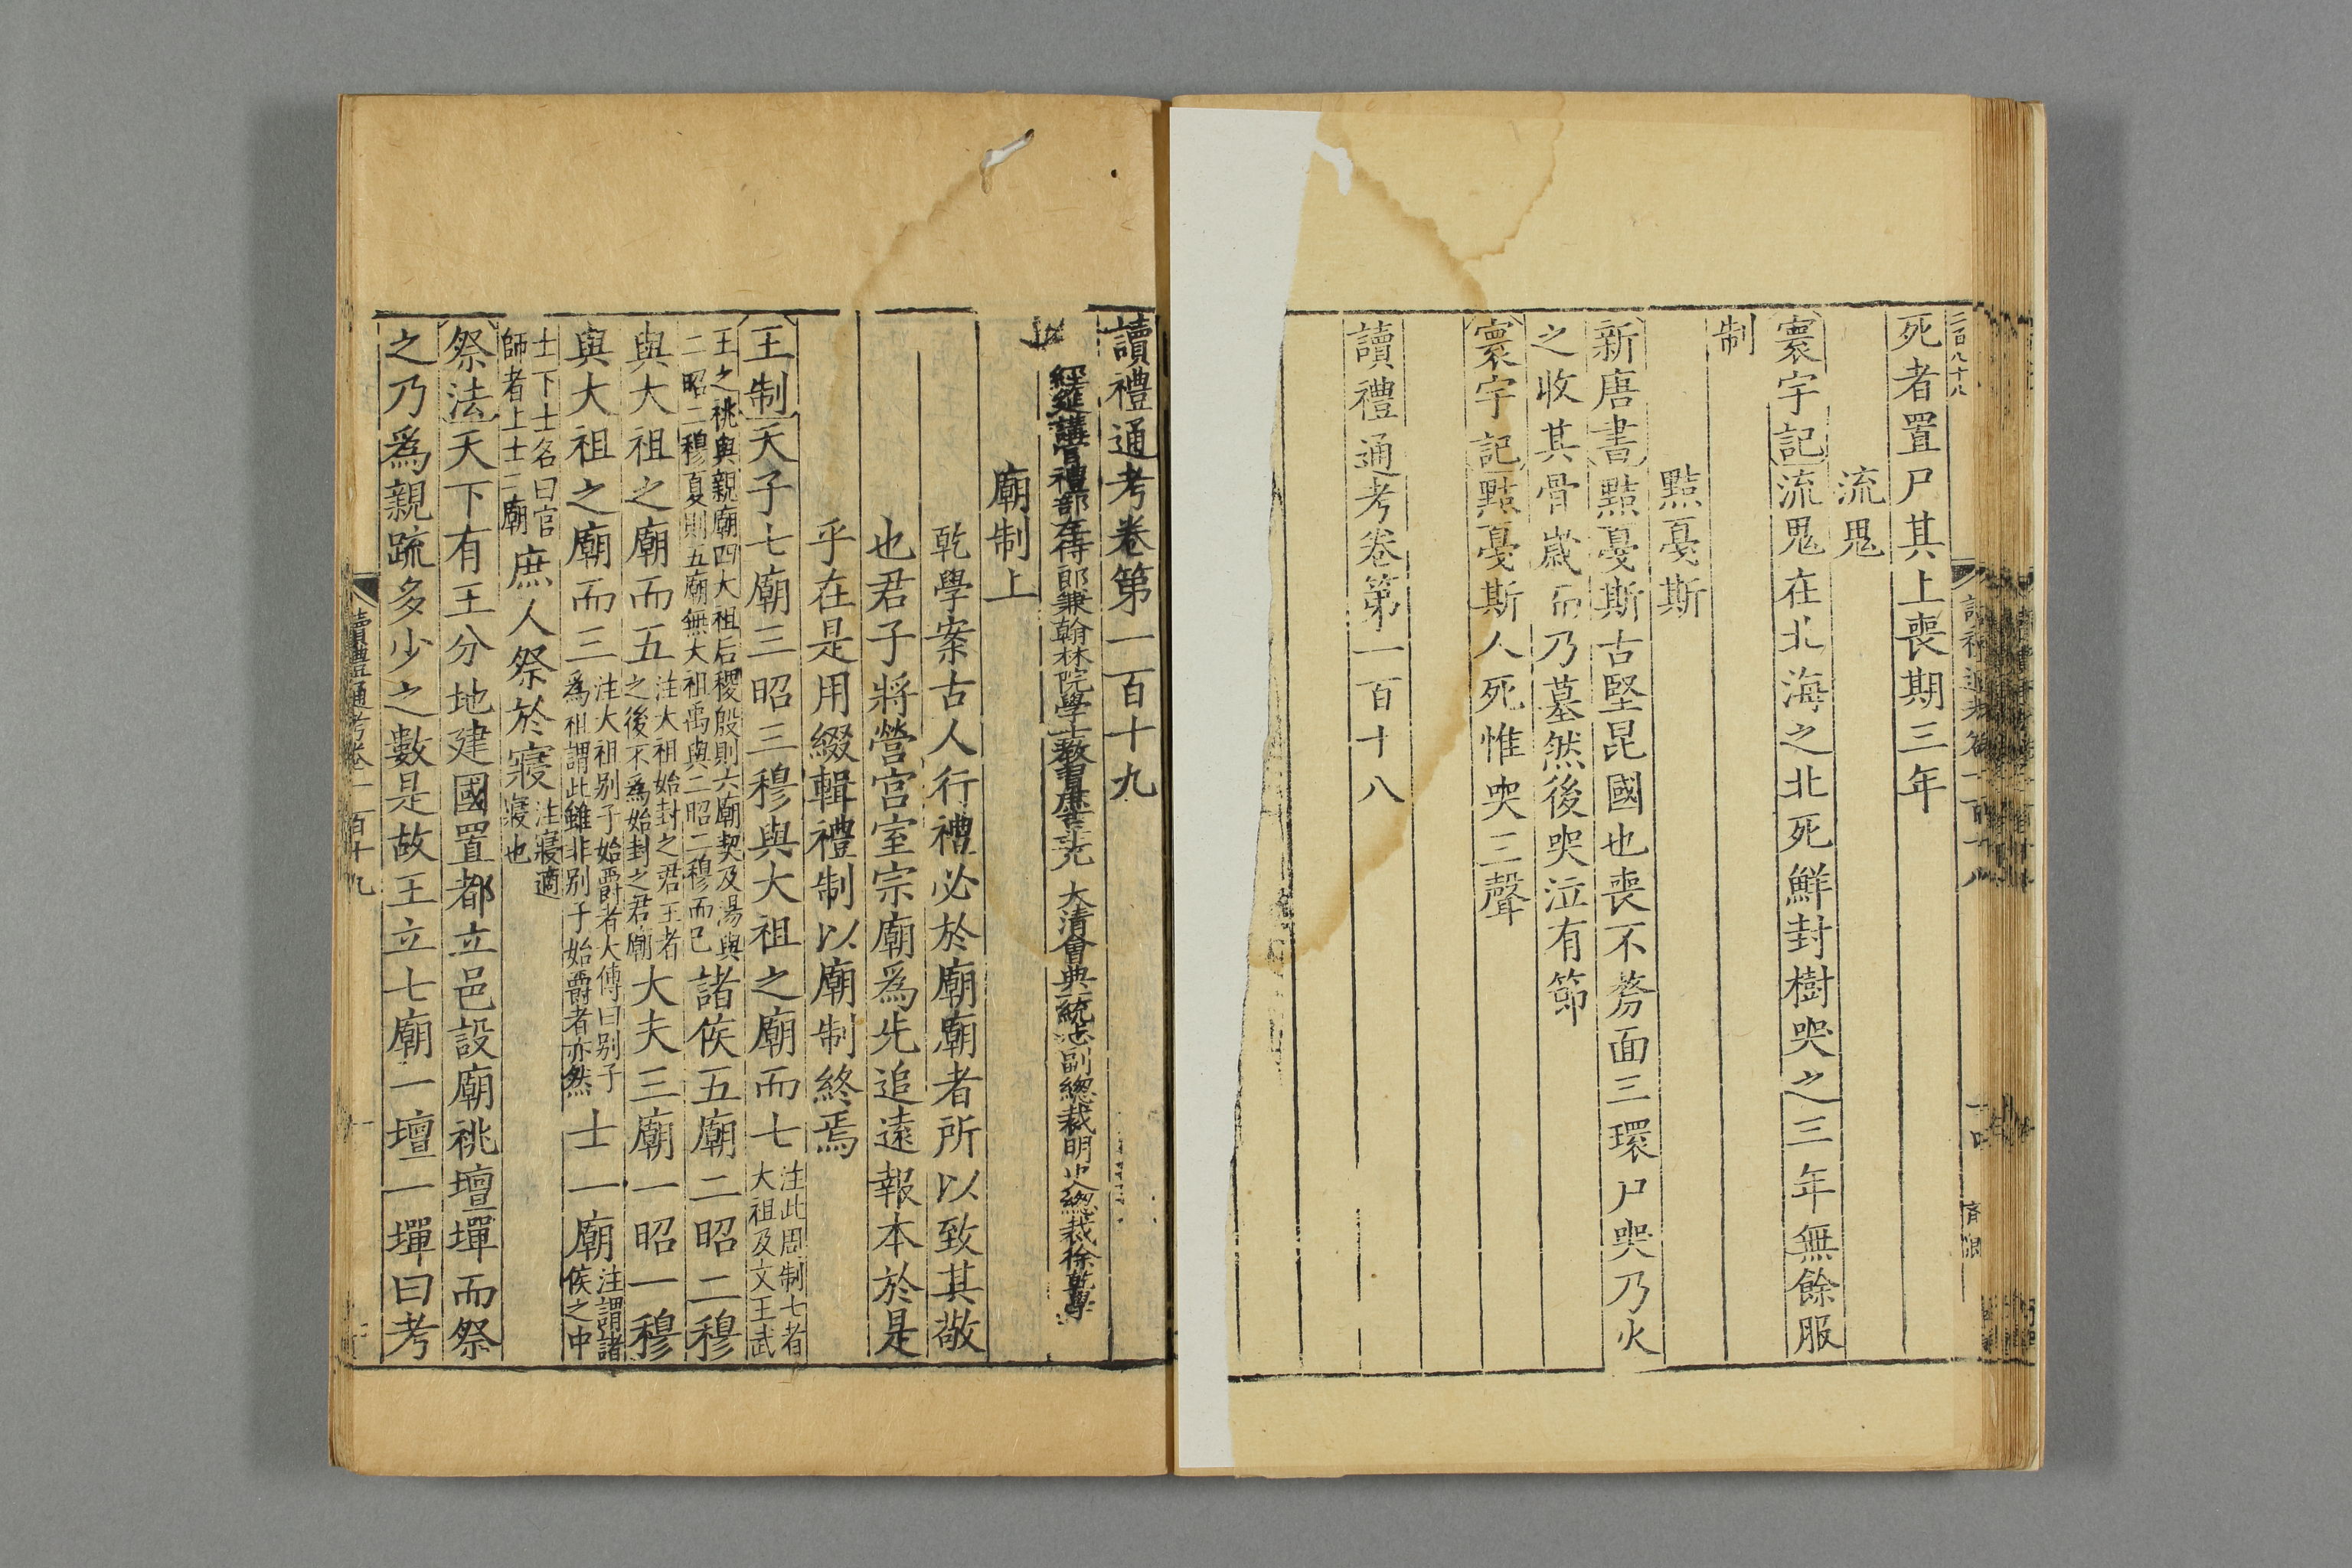 二百八十八
死者置尸其上喪期三年
流鬼
寰宇記流鬼在北海之北死鮮封樹哭之三年無餘服
制
黠戛斯
新唐書黠戛斯古堅昆國也喪不剺面三環尸哭乃火
之收其骨歲而乃墓然後哭泣有節
寰宇記黠戛斯人死惟哭三聲
讀禮通考卷第一百十八
讀禮通考卷第一百十九
經筵講官禮部左侍郎兼翰林院學士教習庶吉士充 大清會典一統志副總裁明史總裁徐乾學
廟制上
乾學案古人行禮必於廟廟者所以致其敬
也君子將營宫室宗廟爲先追遠報本於是
乎在是用綴輯禮制以廟制終焉
王制天子七廟三昭三穆與大祖之廟而七注此周制七者大祖及文王武
王之祧與親廟四大祖后稷殷則六廟契及湯與二昭二穆夏則五廟無大祖禹與二昭二穆而已諸侯五廟二昭二穆
與大祖之廟而五注大祖始封之君王者之後不爲始封之君廟大夫三廟一昭一穆
與大祖之廟而三注大祖别子始爵者大傳曰别子爲祖謂此雖非别子始爵者亦然士一廟注謂諸侯之中
士下士名曰官師者上士二廟庶人祭於寢注寢適寢也
祭法天下有王分地建國置都立邑設廟祧壇墠而祭
之乃爲親疏多少之數是故王立七廟一壇一墠曰考
讀禮通考卷一百十九